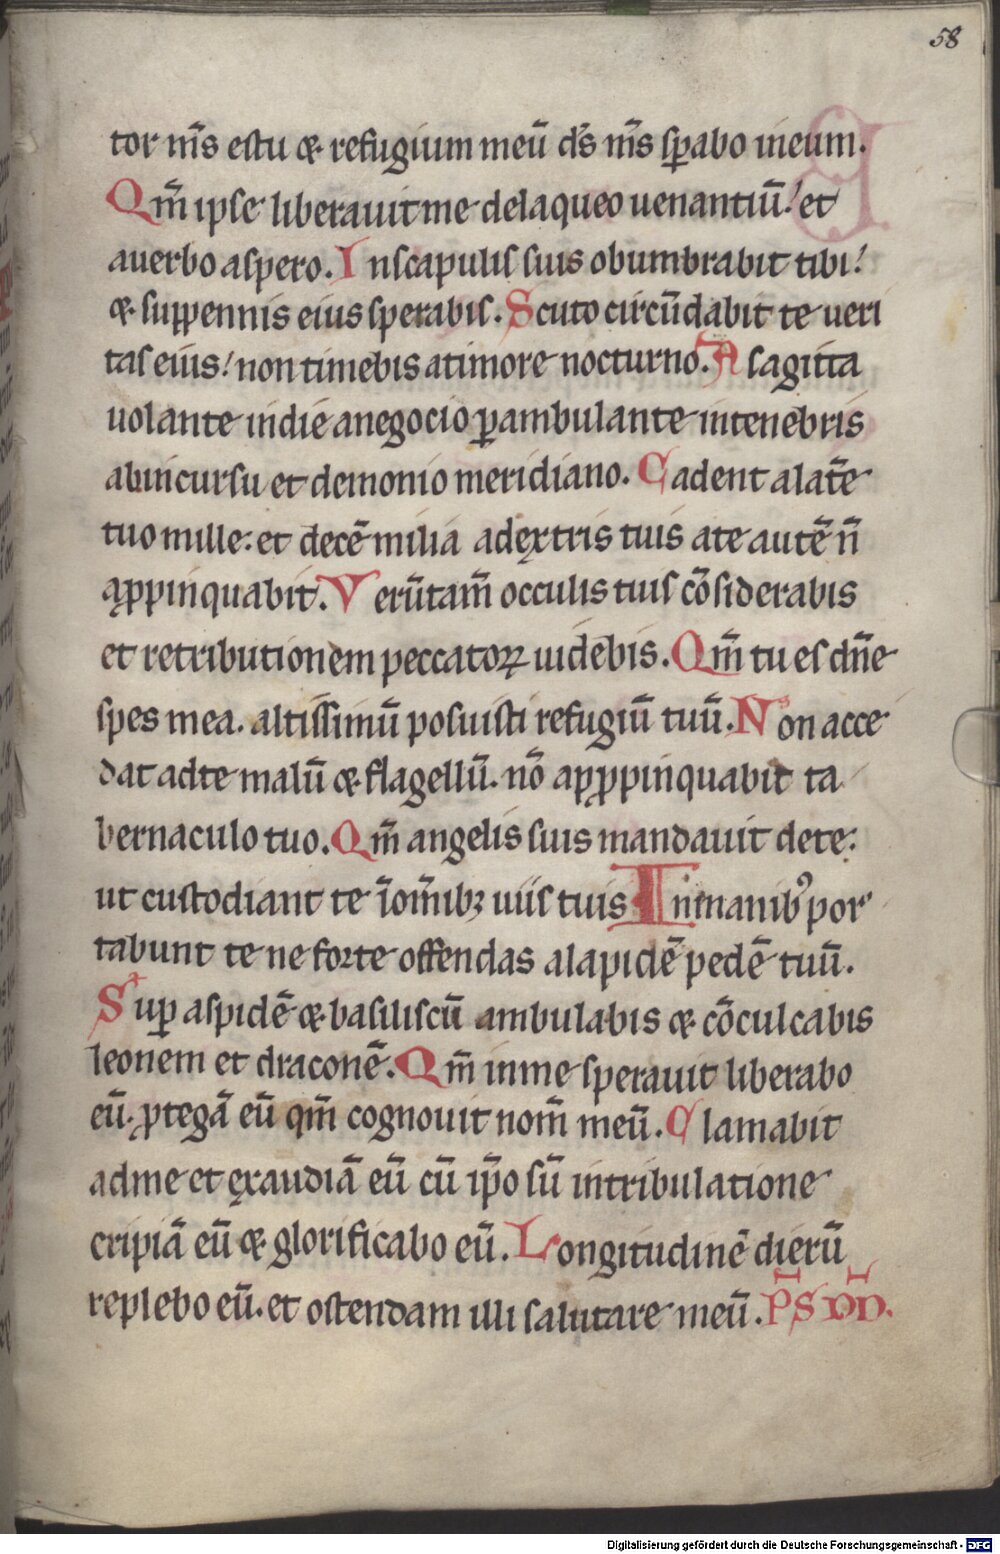 58
tor m̅s estu & refugium meū ds̅ m̅s sꝑabo ineum.
Qm̅ ipse liberauit me delaqueo uenantiū! et
auerbo aspero. Inscapulis suis obumbrabit tibi!
& suppennis eius sperabis. Scuto circūdabit te ueri
tas eius! non timebis atimore nocturno. A sagitta
uolante indie anegocio ꝑambulante intenebris
abincursu et demonio meridiano. Cadent alat̅e
tuo mille: et decē milia adęxtris tuis ate autē n̅
aꝓpinquabit. Verūtam̅ occulis tuis cōsiderabis
et retributionem peccatoꝝ uidebis. Qm̅ tu es dn̅e
spes mea. altissimū posuisti refugiū tuū. Non acce
dat adte malū & flagellū. nō apꝓpinquabit ta
bernaculo tuo. Qm̅ angelis suis mandauit dete:
ut custodiant te īom̅ibꝫ uiis tuis Inmanibꝰ por
tabunt te ne forte offendas alapidē pedē tuū.
Suꝑ aspidē & basiliscū ambulabis & cōculcabis
leonem et draconē. Qm̅ inme sperauit liberabo
eū. ꝓtegā eū qm̅ cognouit nom̅ meū. Clamabit
adme et ęxaudiā eū cū ip̅o sū intribulatione
eripiā eū & glorificabo eū. Longitudinē dierū
replebo eū. et ostendam illi salutare meū. PS DD.
Digitalisierung gefördert durch die Deutsche Forschungsgemeinschaft - DFG